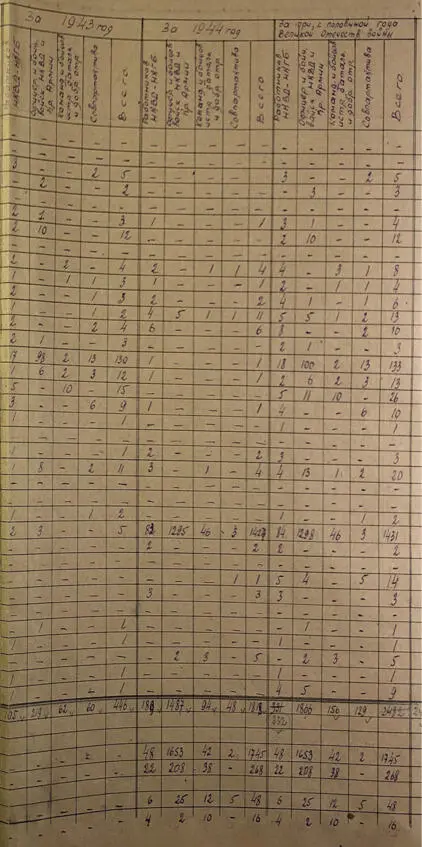 за 1943 год За 1944 год За три, с половиной года Великой Отечеств. войны
НКВД-НКГБ Офицер. и бойц. войск НКВД и Кр. Армии Команд. и бойцов истр. баталь. и добр. отр. Совпартактива Всего Работников НКВД-НКГБ Офицер. и бойцов войск НКВД и Кр. Армии Команд. и бойцов истр. баталь. и добр. отр. Совпартактива Всего Работников НКВД-НКГБ Офицер. и бойц. войск НКВД и Кр. Армии Команд. и бойцов истр. баталь. и добр. отр. Совпартактива Всего
- - 2 5 - - - - - 3 - - 2 5
2 - - 2 - - - - - - 3 - - 3
- - - - - - - - - - - - - -
2 1 - - 3 1 - - - 1 3 1 - - 4
2 10 - - 12 - - - - - 2 10 - - 12
2 - 2 - 4 2 - 1 1 4 4 - 3 1 8
1 - 1 1 3 1 - - - 1 2 - 1 1 4
2 - - 1 3 2 - - - 2 4 1 - 1 6
1 - - 1 2 4 5 1 1 11 5 5 1 2 13
2 - - 2 4 6 - - - 6 8 - - 2 10
2 1 - - 3 - - - - - 2 1 - - 3
17 98 2 13 130 1 - - - 1 18 100 2 13 133
1 6 2 3 12 1 - - - 1 2 6 2 3 13
5 - 10 - 15 - - - - - 5 11 10 - 26
3 - - 6 9 1 - - - 1 4 - - 6 10
1 - - - 1 - - - - - 1 - - - 1
- - - - - - - - - - - - - -
1 - - - 1 2 - - - 2 3 - - - 3
1 8 - 2 11 3 - 1 - 4 4 13 1 2 20
- - - - - - - - - - - - - -
1 - - 1 2 - - - - - 1 - - 1 2
2 3 - - 5 1295 46 3 84 1298 46 3 1431
- - - - 2 - - - 2 2 - - - 2
- - - - - - - - - - - - - -
- - - - - - - 1 1 5 4 - 5 14
- - - - 3 - - - 3 3 - - - 3
- - - - - - - - - - - - - -
1 - - - 1 - - - - - 1 - - - 1
1 - - - 1 - - - - - 1 - - - 1
- - - - - 2 3 - 5 - 2 3 - 5
1 - - - 1 - - - - - 1 - - - 1
1 - - - 1 - - - - - 4 5 - - 9
105 219 62 60 446 189 1487 94 48 1818 1806 156 129
- - - - 48 1653 42 2 1745 48 1653 42 2 1745
22 208 38 - 268 22 208 38 - 268
6 25 12 5 48 6 25 12 5 48
4 2 10 - 16 4 2 10 - 16